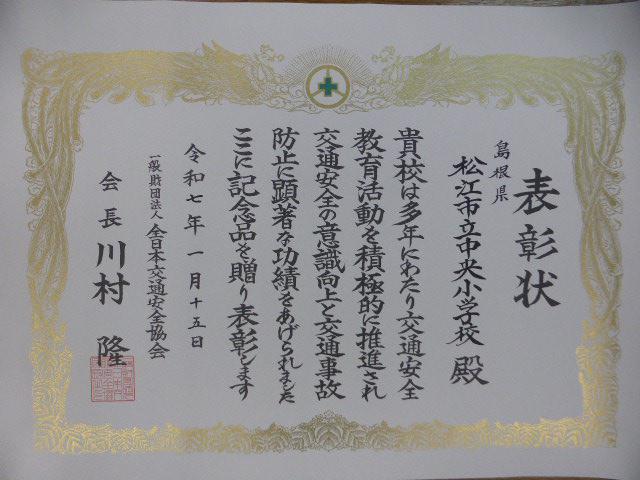 表彰状
島根県
松江市立中央小学校 殿
貴校は多年にわたり交通安全
教育活動を積極的に推進され
交通安全の意識向上と交通事故
防止に顕著な功績をあげられました
ここに記念品を贈り表彰します
令和七年一月十五日
一般財団法人 全日本交通安全協会
会長 川村 隆